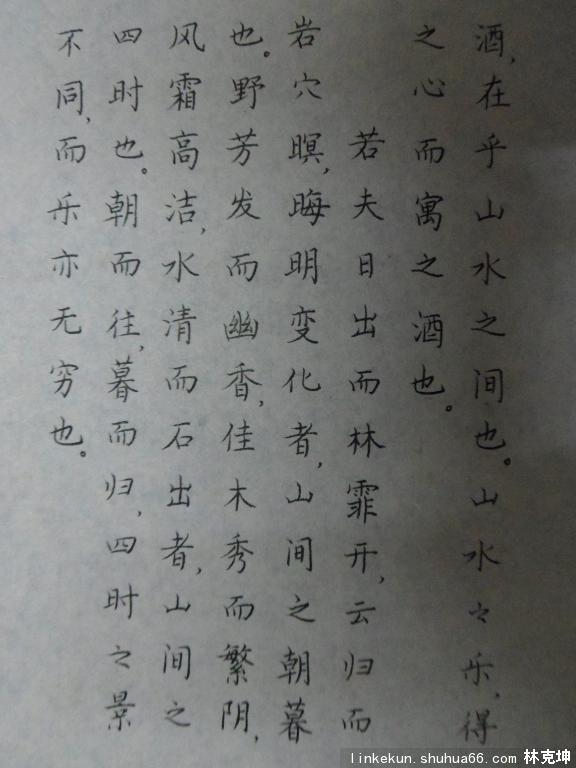 酒，在乎山水之间也。山水之乐，得
之心而寓之酒也。
若夫日出而林霏开，云归而
岩穴暝，晦明变化者，山间之朝暮
也。野芳发而幽香，佳木秀而繁阴，
风霜高洁，水清而石出者，山间之
四时也。朝而往，暮而归，四时之景
不同，而乐亦无穷也。
linkekun.shuhua66.com 林克坤